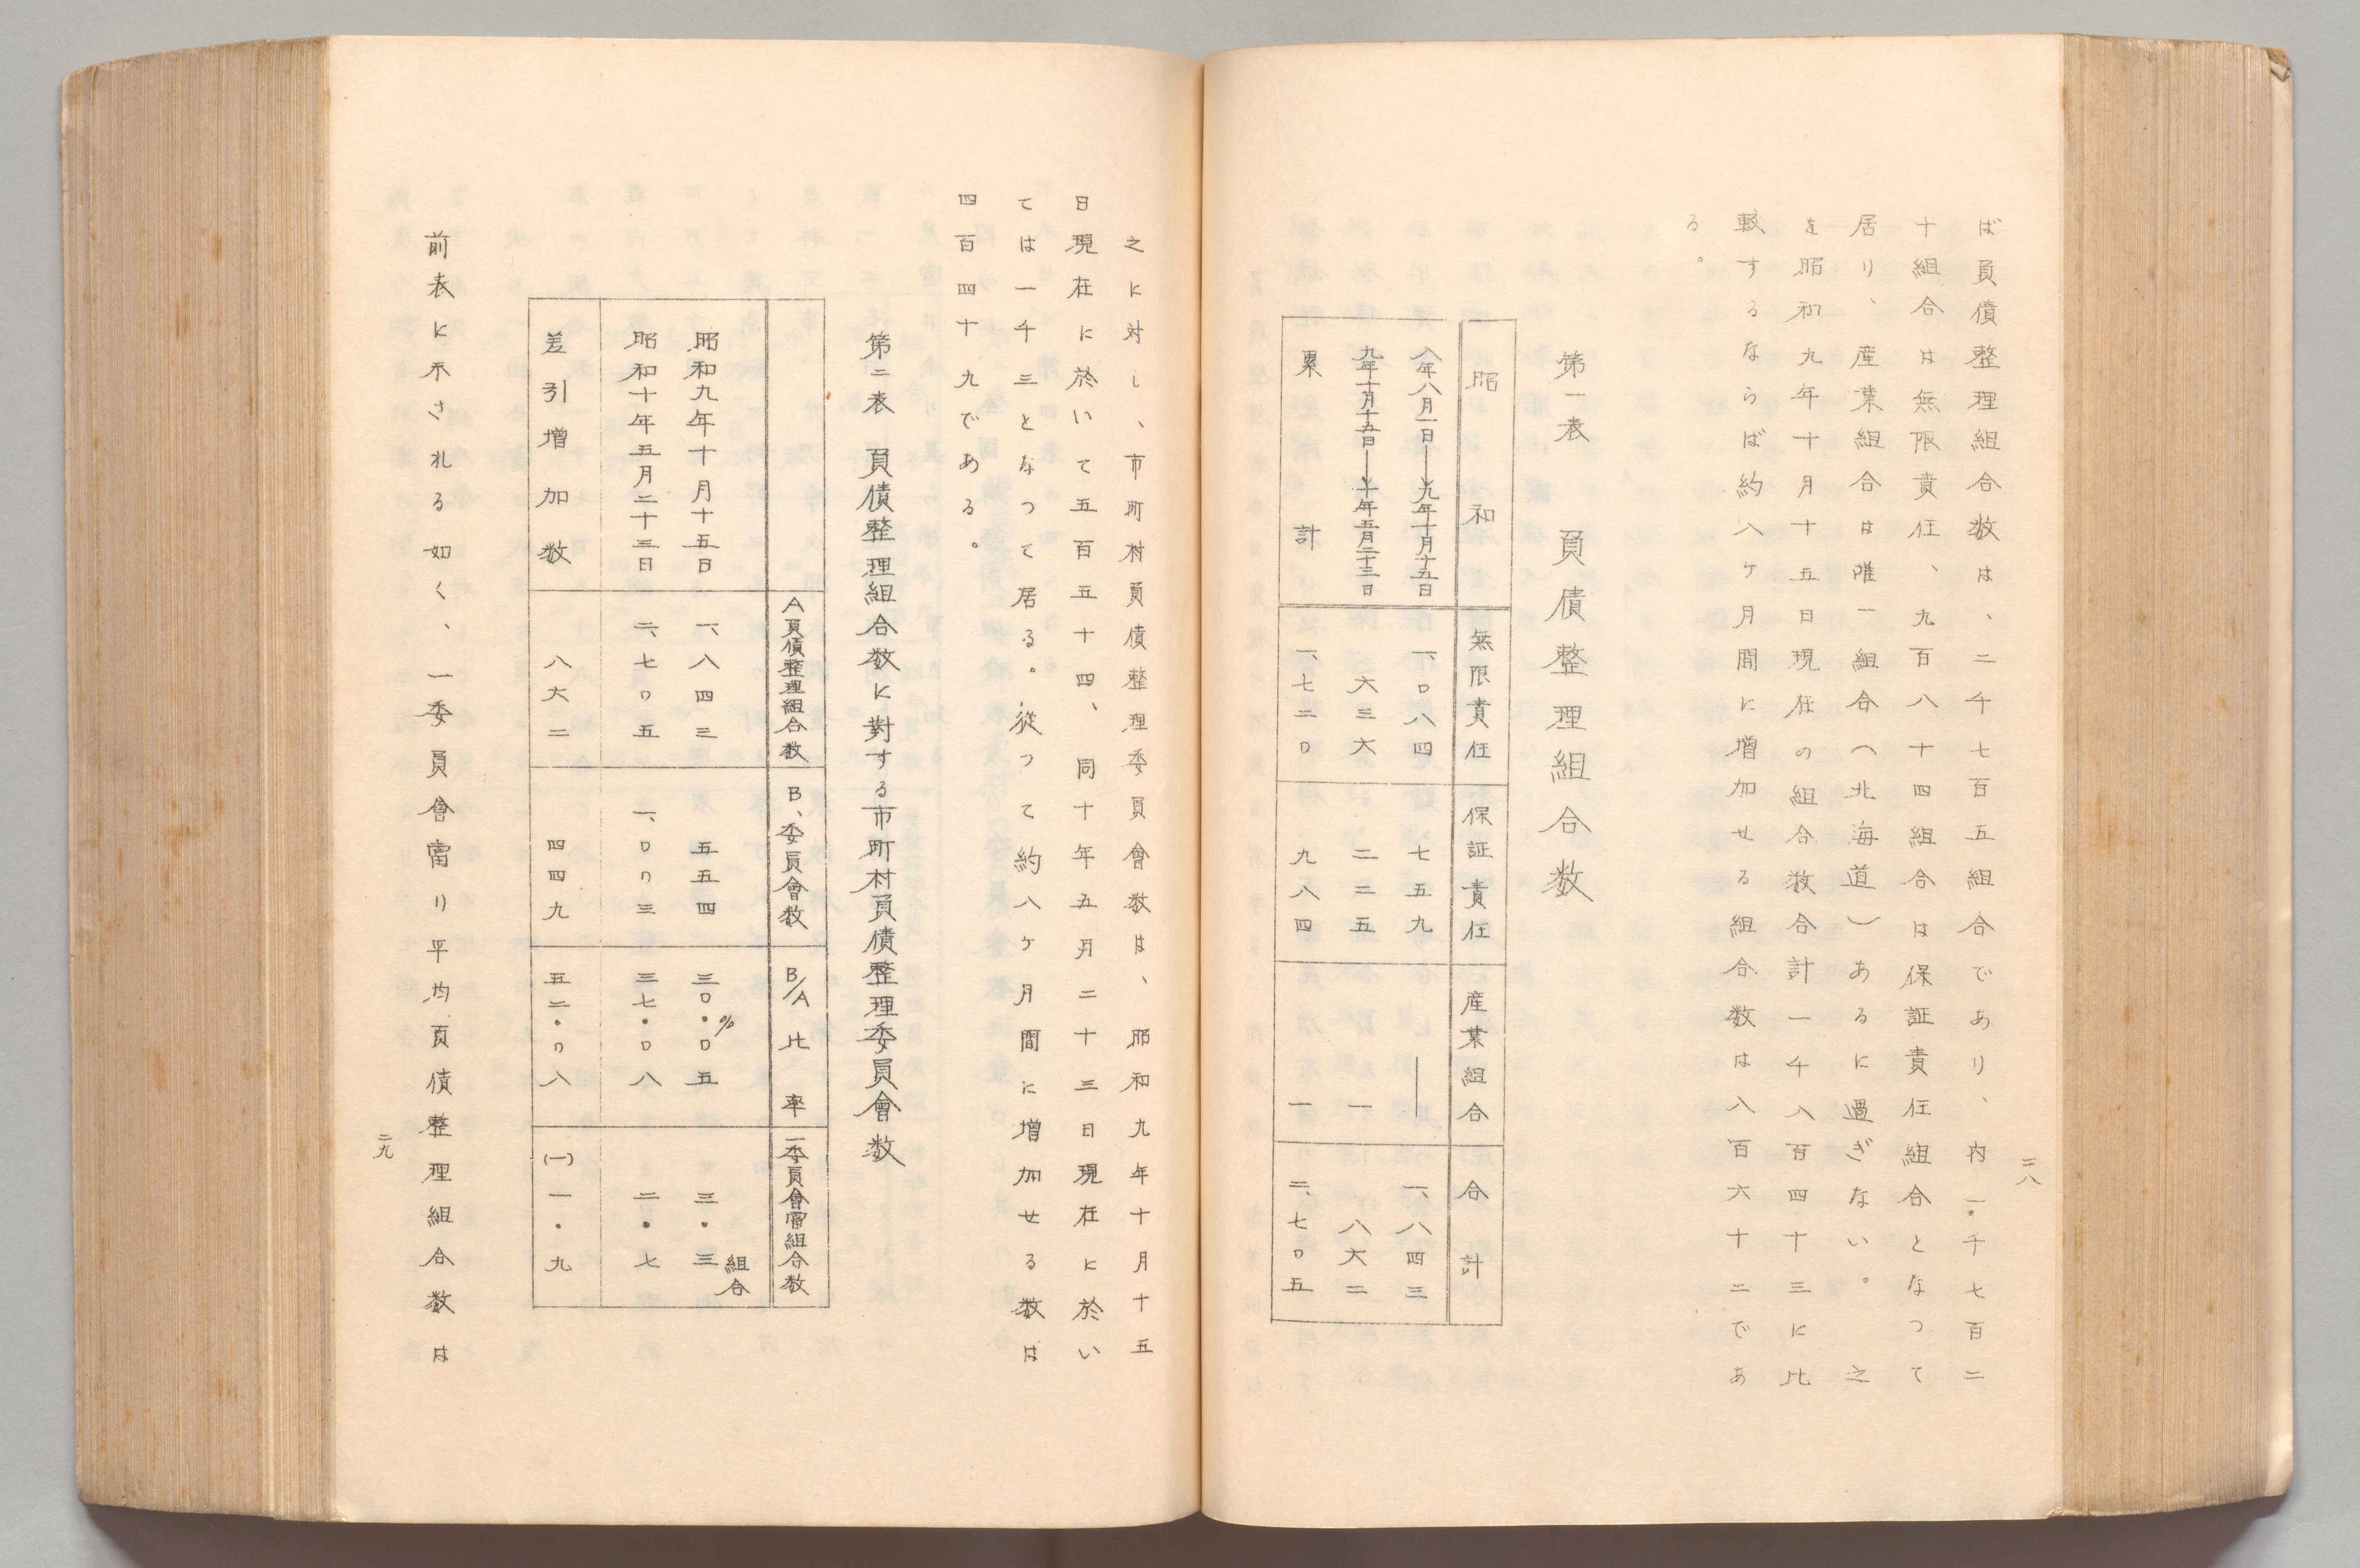 二八
ば負債整理組合数は、二千七百五組合であり、内一千七百二
十組合は無限責任、九百八十四組合は保証責任組合となつて
居り、産業組合は唯一組合(北海道)あるに過ぎない。之
を昭和九年十月十五日現在の組合数合計一千八百四十三に比
較するならば約八ヶ月間に増加せる組合数は八百六十二であ
る。
第一表 負債整理組合数
昭和 無限責任 保証責任 産業組合 合計
八年八月一日―九年十月十五日 一、〇八四 七五九 ― 一、八四三
九年十月十五日―十年五月二十三日 六三六 二二五 一 八六二
累計 一、七二〇 九八四 一 二、七〇五
之に対し、市町村負債整理委員會数は、昭和九年十月十五
日現在に於いて五百五十四、同十年五月二十三日現在に於い
ては一千三となつて居る。従つて約八ヶ月間に増加せる数は
四百四十九である。
第二表 負債整理組合数に對する市町村負債整理委員會数
A負債整理組合数 B、委員會数 B/A比率 一委員會當組合数
昭和九年十月十五日 一、八四三 五五四 三〇・〇五% 三・三組合
昭和十年五月二十三日 二、七〇五 一、〇〇三 三七・〇八 二・七
差引増加数 八六二 四四九 五二・〇八 (一)一・九
前表に示される如く、一委員會當り平均負債整理組合数は
二九